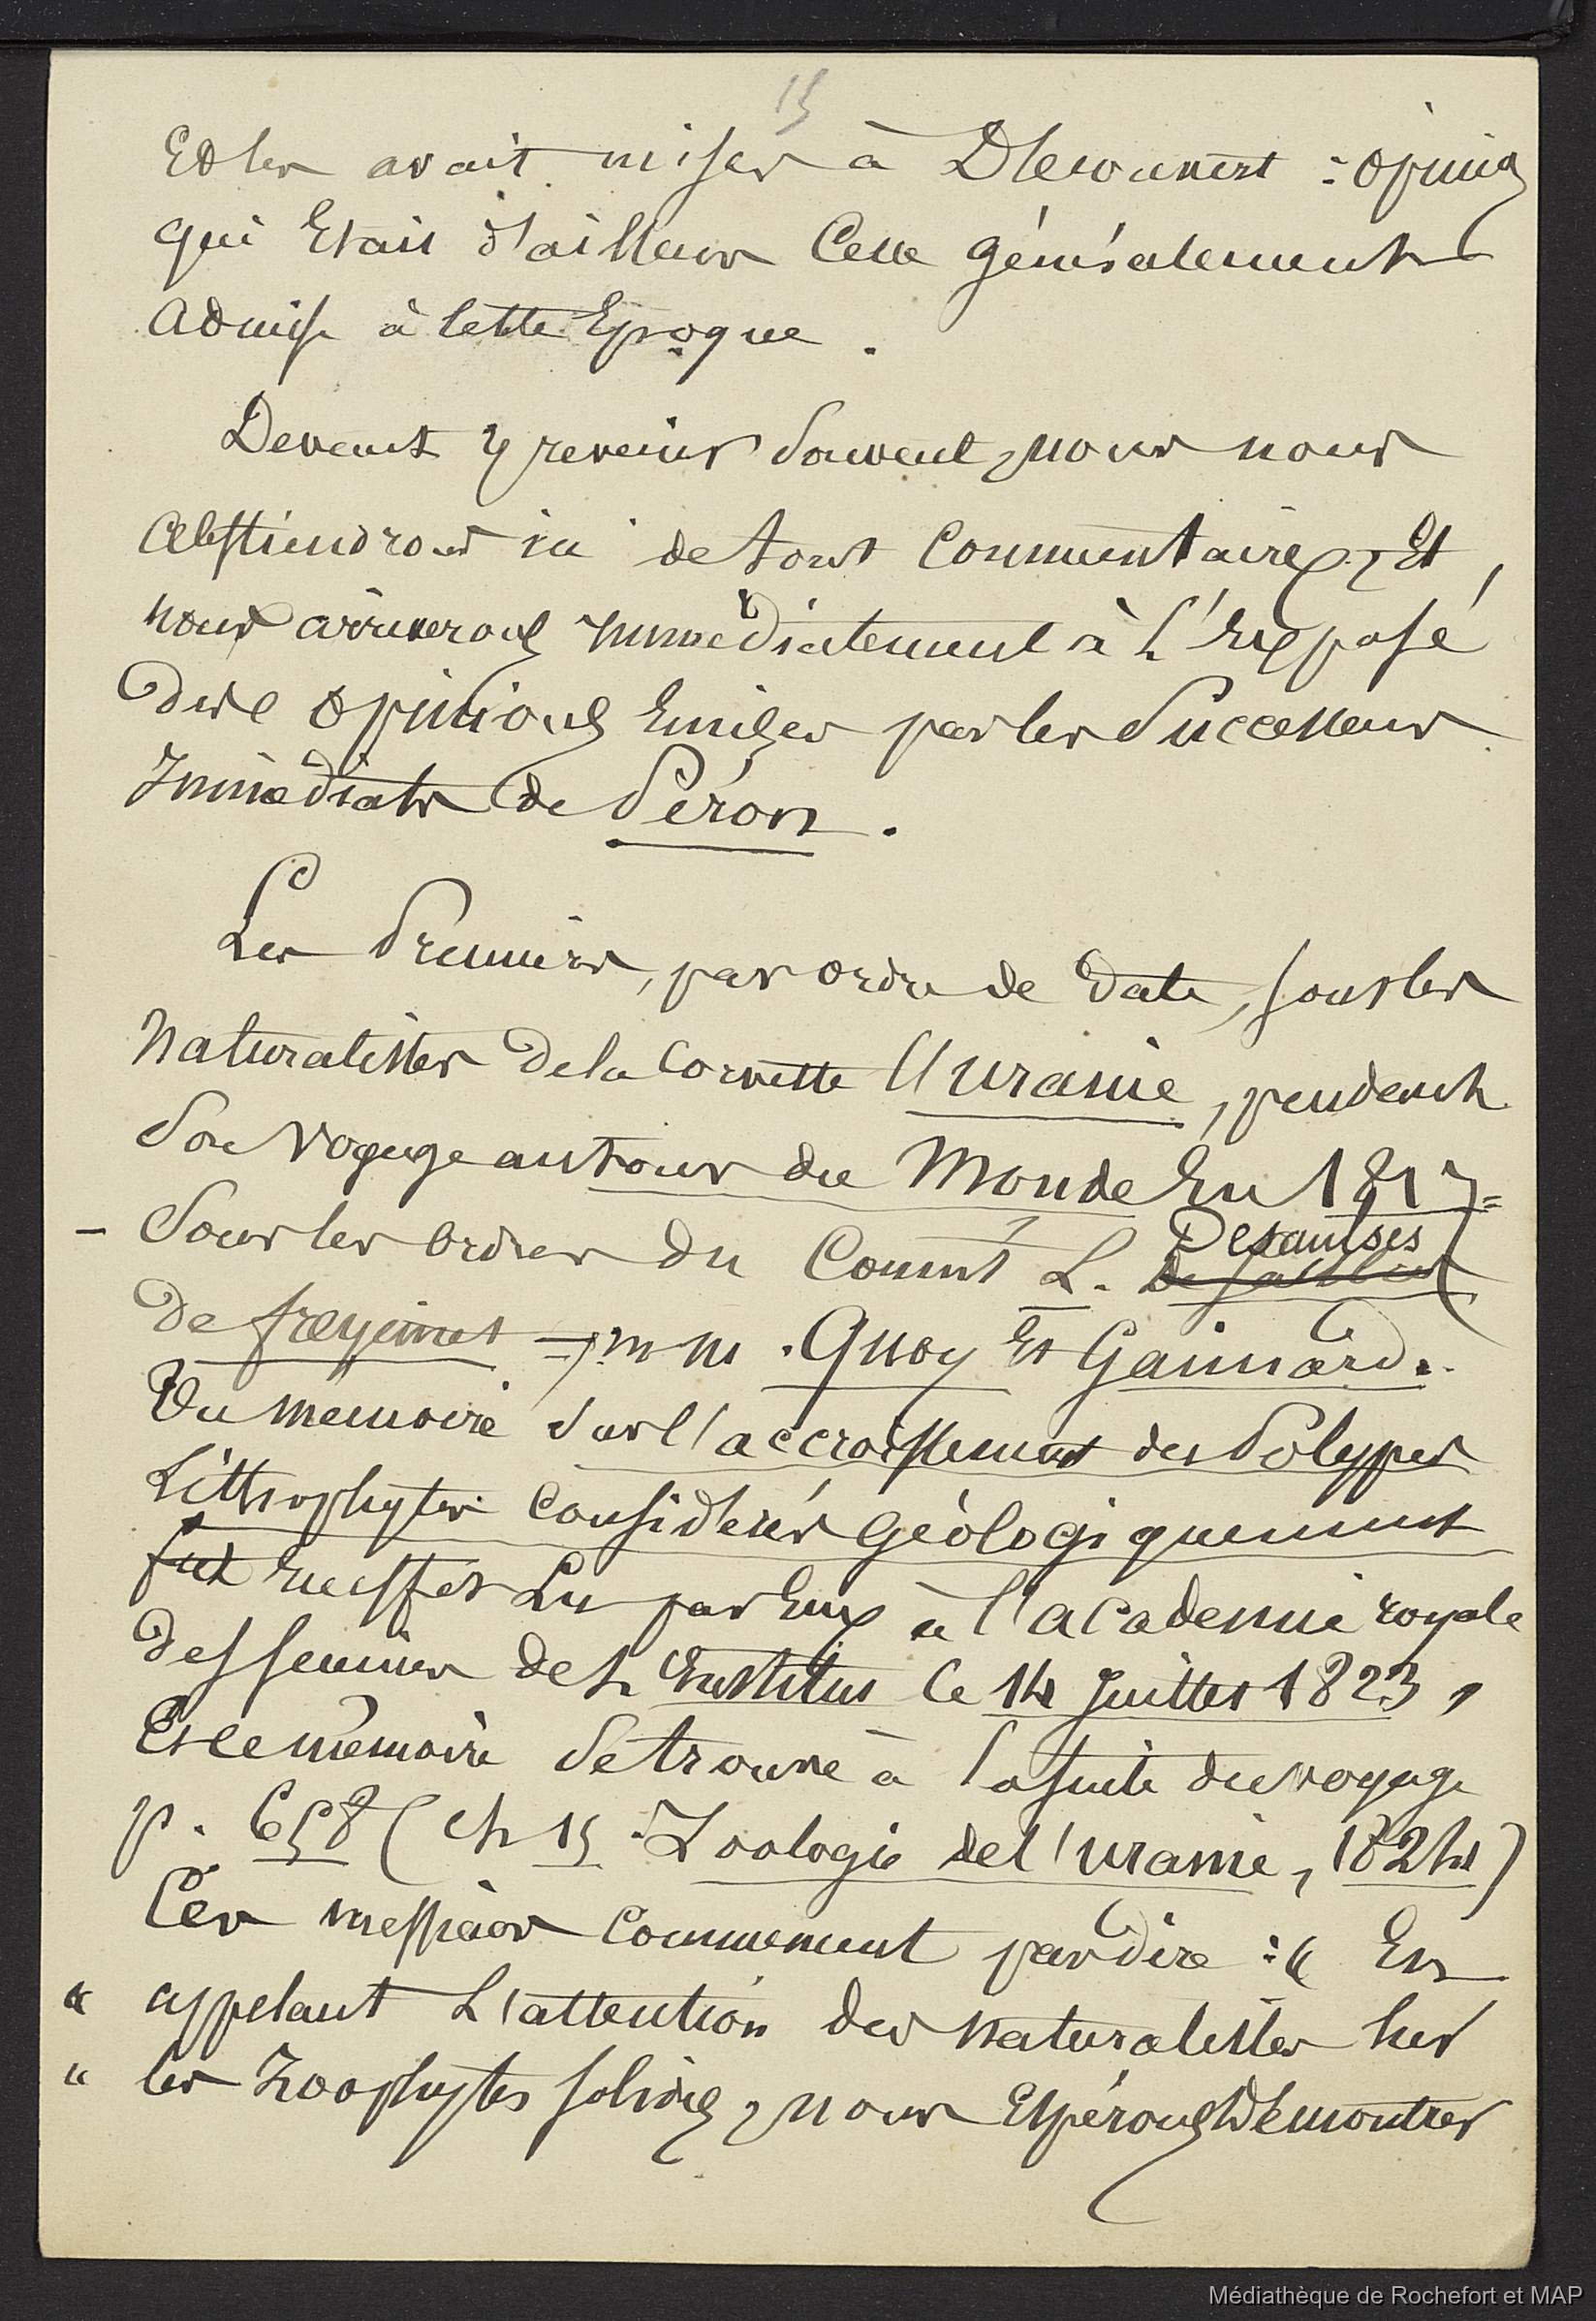 15
Et les avait mises à Découvert : opinion
qui Etait d'ailleurs Celle généralement
admise à cette Epoque .
Devant y revenir Souvent, nous nous
abstiendrons ici de tout Commentaire, Et
nous arriverons immédiatement à L'Exposé
des opinions Emises par les Successeurs
Immédiats de Péron .
Les Premiers, par ordre de date, sont les
Naturalistes de la Corvette l'Uranie, pendant
Son Voyage autour du Monde En 1817
- Sous les ordres du Commt L. Desaulses
de freycinet - , mm . Quoy Et Gaimard .
Un mémoire Sur l'accroissement des Polypes
Lithophytes Considérés Géologiquement
fut Lu par Eux à l'académie royale
des sciences de L'Institut le 14 Juillet 1823 ,
Et ce mémoire Se trouve à la suite du voyage
p. 658 ( ch 15 . Zoologie de l'Uranie, 1824 )
Ces messieurs Commencent par dire : « En
« appelant L'attention des naturalistes sur
« les Zoophytes solides, nous Espérons Démontrer
Médiathèque de Rochefort et MAP